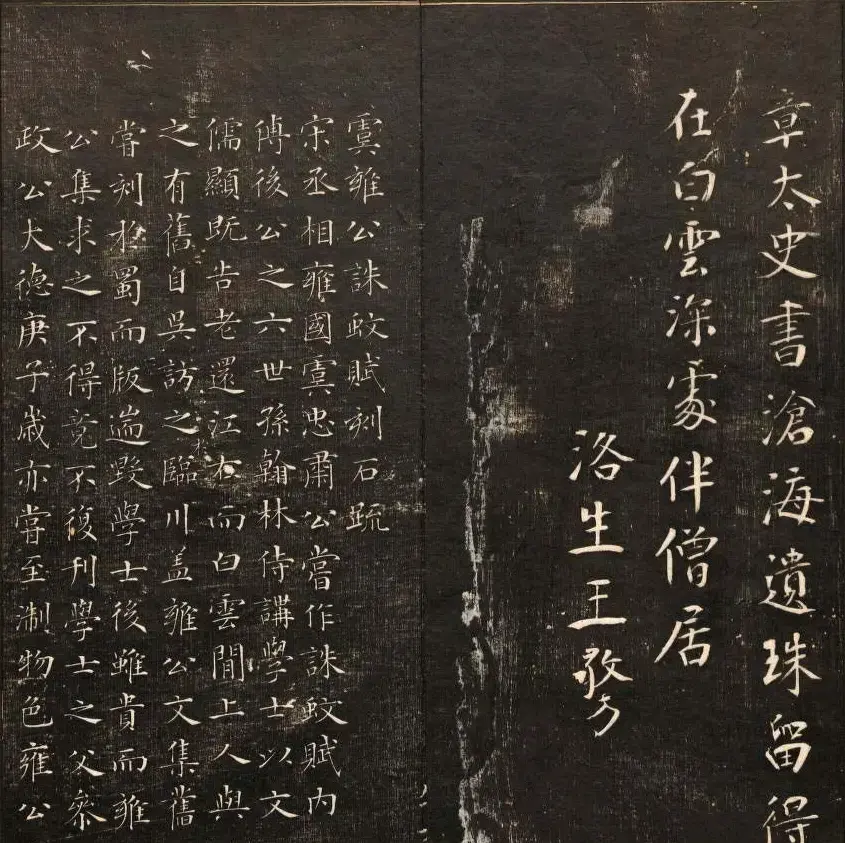 章太史書滄海遺珠留得
在白雲深處伴僧居
洛生王
虞雍公誅蚊賦刻石疏
宋丞相雍國虞忠肅公嘗作誅蚊賦内
傅後公之六世孫翰林侍講學士以文
儒顯既告老還江右而白雲閒上人與
之有舊自吳訪之臨川盖雍公文集舊
嘗刻於蜀而版遄毀學士後雖貴而雍
公集求之不得竟不復刊學士之父參
政公大德庚子歲亦嘗至淛物色雍公